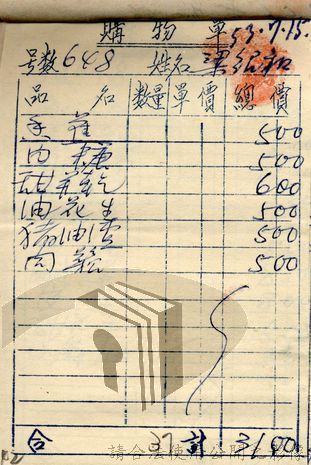 購物單 53.7.15.
号數 648 姓名 梁紹和
品名 數量 單價 總價
500
白糖 500
甜蘿乾 600
油花生 500
猪油渣 500
肉鬆 500
合 計 3100
請合法使用公開之影像